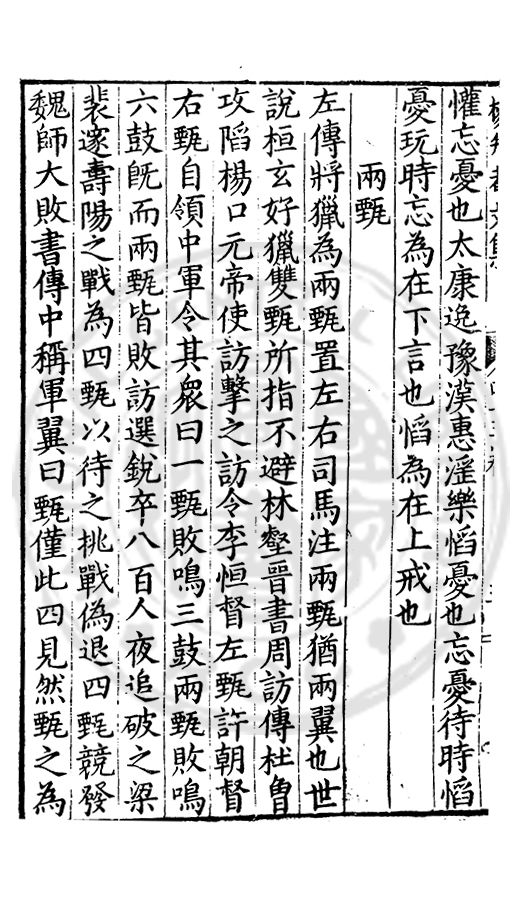 懽忘憂也太康逸豫漢惠滛樂慆憂也忘憂待時慆
憂玩時忘為在下言也慆為在上戒也
兩甄
左傳將獵為兩甄置左右司馬注兩甄猶兩翼也世
說桓玄好獵雙甄所指不避林壑晉書周訪傳杜曾
攻陷楊口元帝使訪擊之訪令李恒督左甄許朝督
右甄自領中軍令其衆曰一甄敗鳴三鼓兩甄敗鳴
六鼓旣而兩甄皆敗訪選銳卒八百人夜追破之梁
裴邃壽陽之戰為四甄以待之挑戰偽退四甄競發
魏師大敗書傳中稱軍翼曰甄僅此四見然甄之為